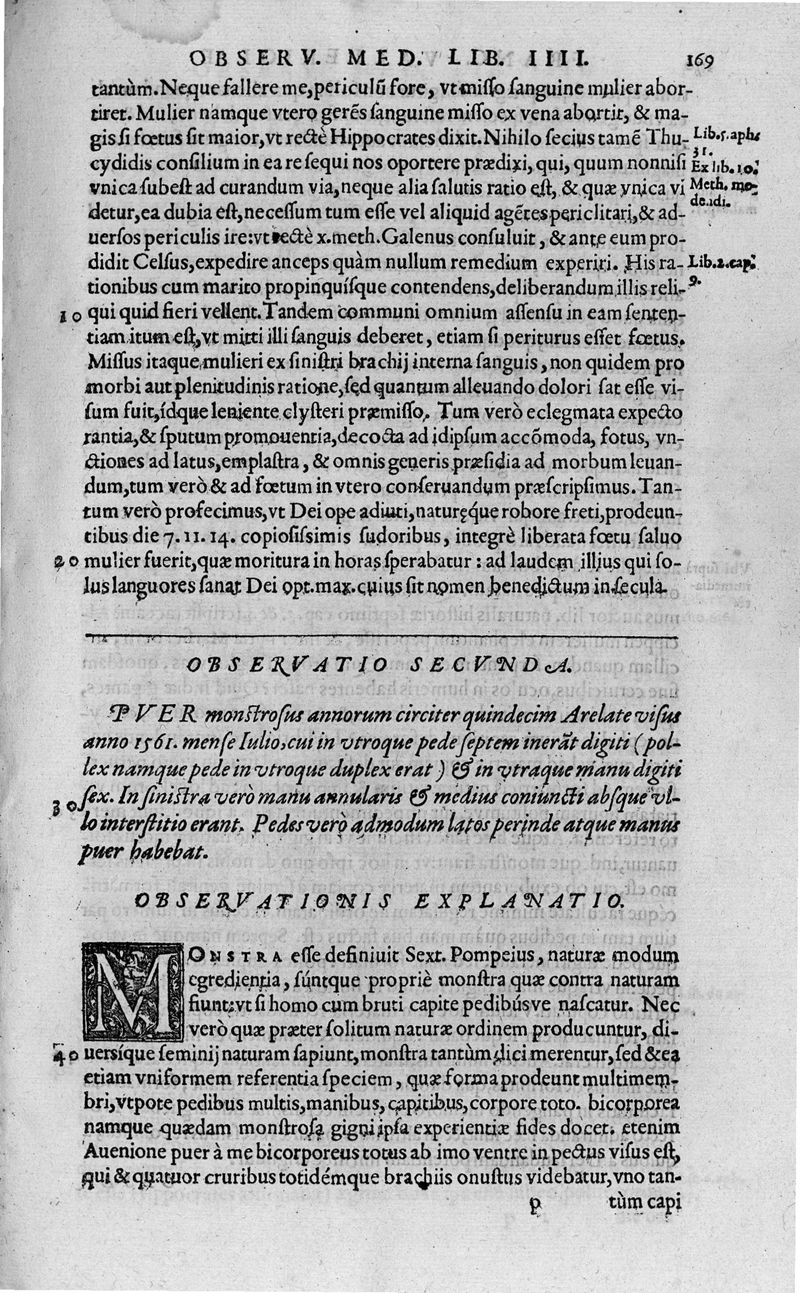 OBSERV. MED. LIB. IIII. 169
tantùm. Neque fallere me, periculũ fore, vt misso sanguine mulier abor-
tiret. Mulier namque vtero gerẽs sanguine misso ex vena abortit, & ma-
gis si fœtus sit maior, vt rectè Hippocrates dixit. Nihilo secius tamẽ Thu-
Lib. 5. aph.
31.
cydidis consilium in ea re sequi nos oportere prædixi, qui, quum nonnisi
Ex lib. 10.
vnica subest ad curandum via, neque alia salutis ratio est, & quæ vnica vi
Meth. me-
detur, ea dubia est, necessum tum esse vel aliquid agẽtes periclitari, & ad-
de. idi.
uersos periculis ire: vt rectè x. meth. Galenus consuluit, & ante eum pro-
didit Celsus, expedire anceps quàm nullum remedium experiri. His ra-
Lib. 2. cap.
9.
tionibus cum marito propinquísque contendens, deliberandum illis reli-
10 qui quid fieri vellent. Tandem communi omnium assensu in eam senten-
tiam itum est, vt mitti illi sanguis deberet, etiam si periturus esset fœtus.
Missus itaque mulieri ex sinistri brachij interna sanguis, non quidem pro
morbi aut plenitudinis ratione, sed quantum alleuando dolori sat esse vi-
sum fuit, ídque leniente clysteri præmisso. Tum verò eclegmata expecto
rantia, & sputum promouentia, decocta ad idipsum accõmoda, fotus, vn-
ctiones ad latus, emplastra, & omnis generis præsidia ad morbum leuan-
dum, tum verò & ad fœtum in vtero conseruandum præscripsimus. Tan-
tum verò profecimus, vt Dei ope adiuti, naturęque robore freti, prodeun-
tibus die 7. 11. 14. copiosissimis sudoribus, integrè liberata fœtu saluo
20 mulier fuerit, quæ moritura in horas sperabatur: ad laudem illius qui so-
lus languores sanat Dei opt. max. cuius sit nomen benedictum in secula.
OBSERVATIO SECVNDA.
PVER monstrosus annorum circiter quindecim Arelate visus
anno 1561. mense Iulio, cui in vtroque pede septem inerãt digiti (pol-
lex namque pede in vtroque duplex erat) & in vtraque manu digiti
30 sex. In sinistra verò manu annularis & medius coniuncti absque vl-
lo interstitio erant. Pedes verò admodum latos perinde atque manus
puer habebat.
OBSERVATIONIS EXPLANATIO.
MONSTRA esse definiuit Sext. Pompeius, naturæ modum
egredientia, súntque propriè monstra quæ contra naturam
fiunt: vt si homo cum bruti capite pedibúsve nascatur. Nec
verò quæ præter solitum naturæ ordinem producuntur, di-
40 uersíque seminij naturam sapiunt, monstra tantùm dici merentur, sed & ea
etiam vniformem referentia speciem, quæ forma prodeunt multimem-
bri, vtpote pedibus multis, manibus, capitibus, corpore toto. bicorporea
namque quædam monstrosa gigni ipsa experientiæ fides docet. etenim
Auenione puer à me bicorporeus totus ab imo ventre in pectus visus est,
qui & quatuor cruribus totidémque brachiis onustus videbatur, vno tan-
p tùm capi